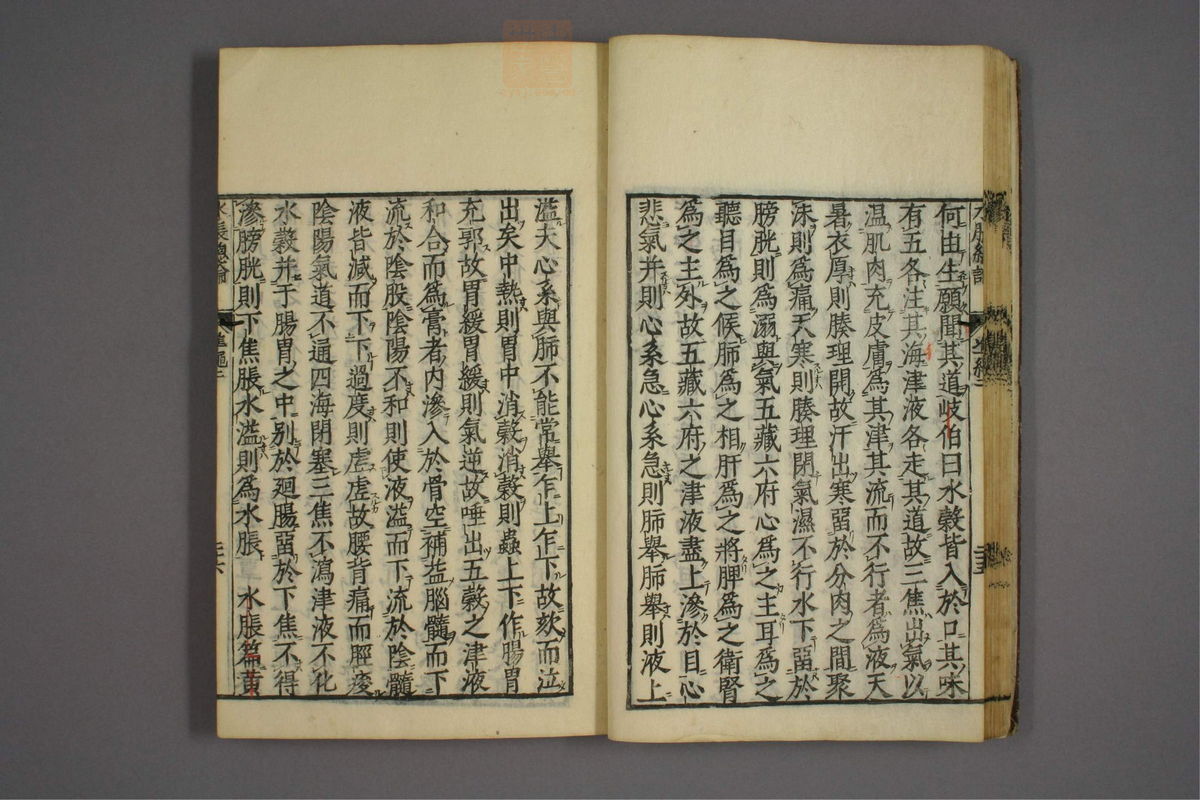 何由生願聞其道岐伯曰水穀皆入於口其味
有五各注其海津液各走其道故三焦出氣以
温肌肉充皮膚爲其津其流而不行者爲液天
暑衣厚則腠理開故汗出寒畱於分肉之間聚
沫則爲痛天寒則腠理閉氣濕不行水下畱於
膀胱則爲溺與氣五藏六府心爲之主耳爲之
聽目爲之候肺爲之相肝爲之將脾爲之衛腎
爲之主外故五藏六府之津液盡上滲於目心
悲氣并則心系急心系急則肺舉肺舉則液上
溢夫心系與肺不能常舉乍上乍下故欬而泣
出矣中熱則胃中消穀消穀則蟲上下作腸胃
充郭故胃緩胃緩則氣逆故唾出五穀之津液
和合而爲膏者内滲入於骨空補益腦髓而下
流於陰股陰陽不和則使液溢而下流於陰髓
液皆減而下下過度則虛虛故腰背痛而脛痠
陰陽氣道不通四海閉塞三焦不瀉津液不化
水穀并于腸胃之中別於廻腸畱於下焦不得
滲膀胱則下焦脹水溢則爲水脹 水脹篇黃
水脹總論